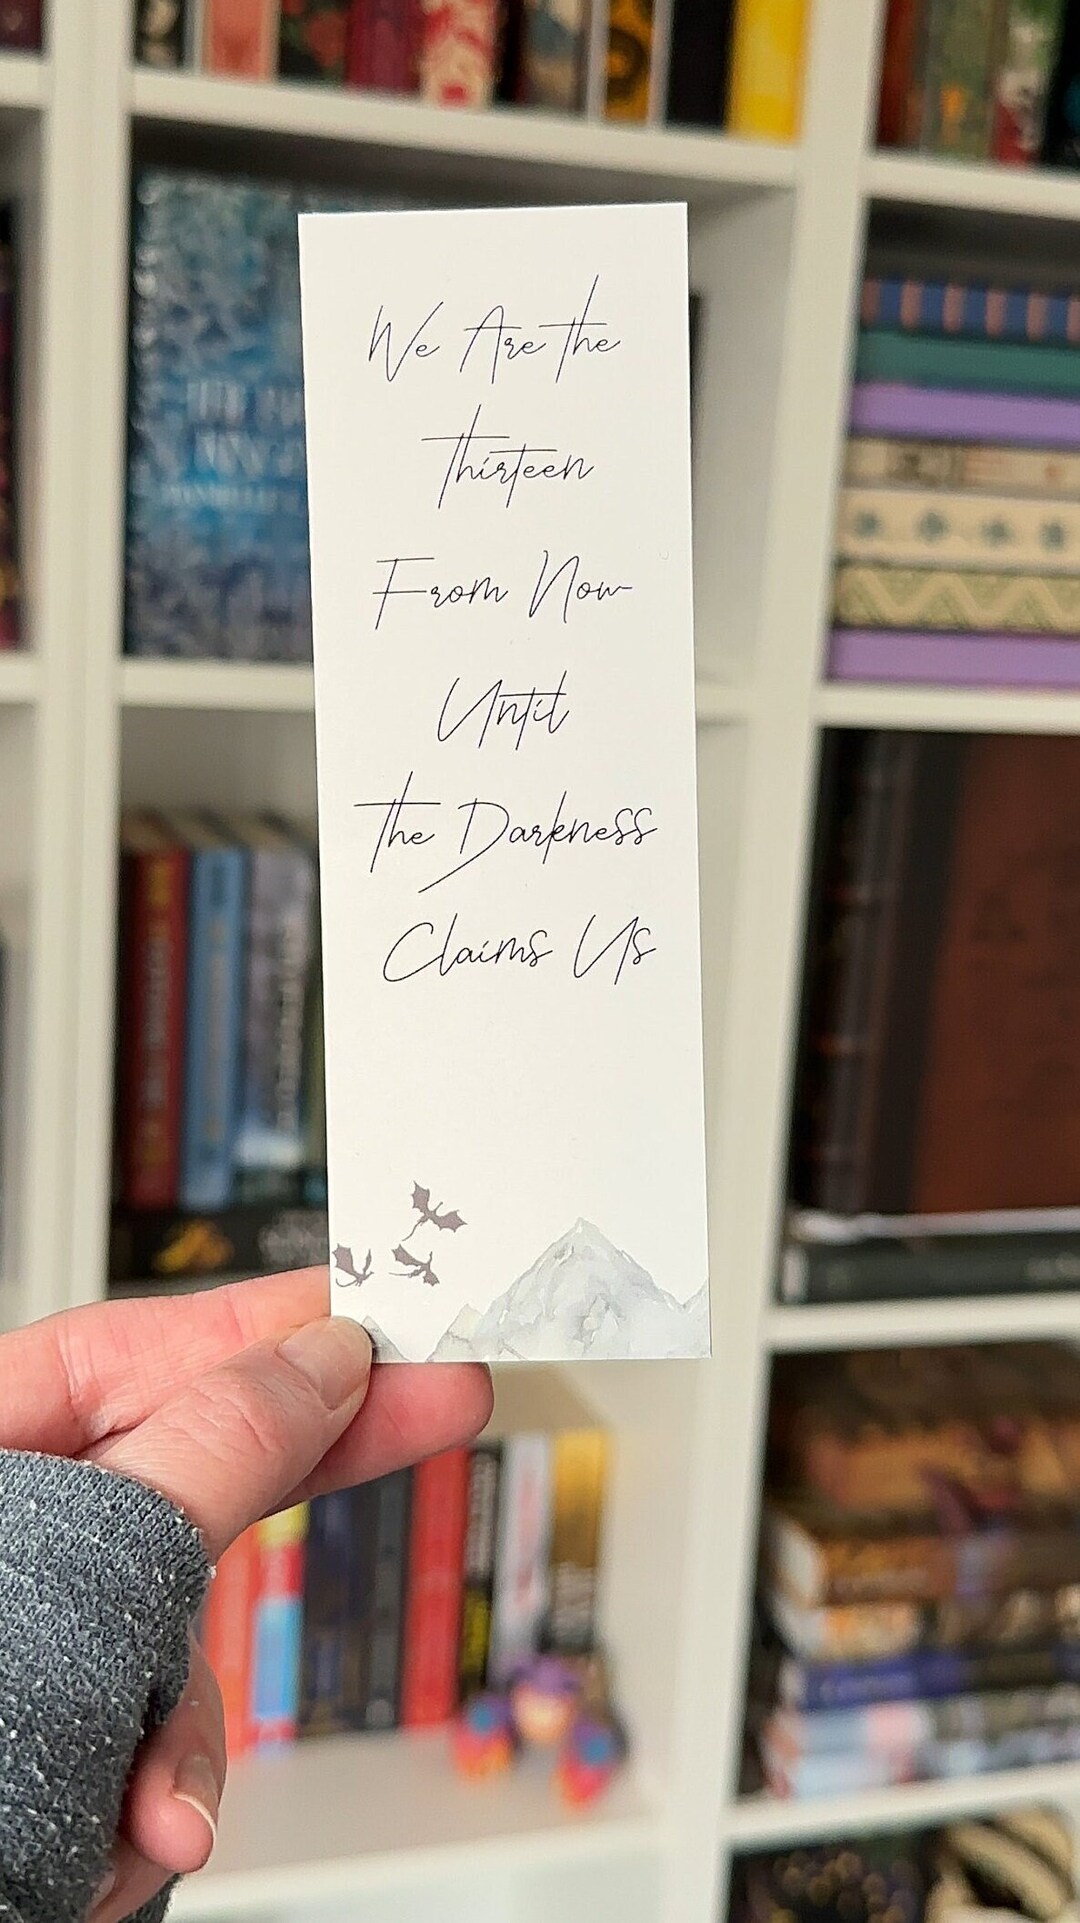 We Are the
thirteen
From Now
Until
the Darkness
Claims Us